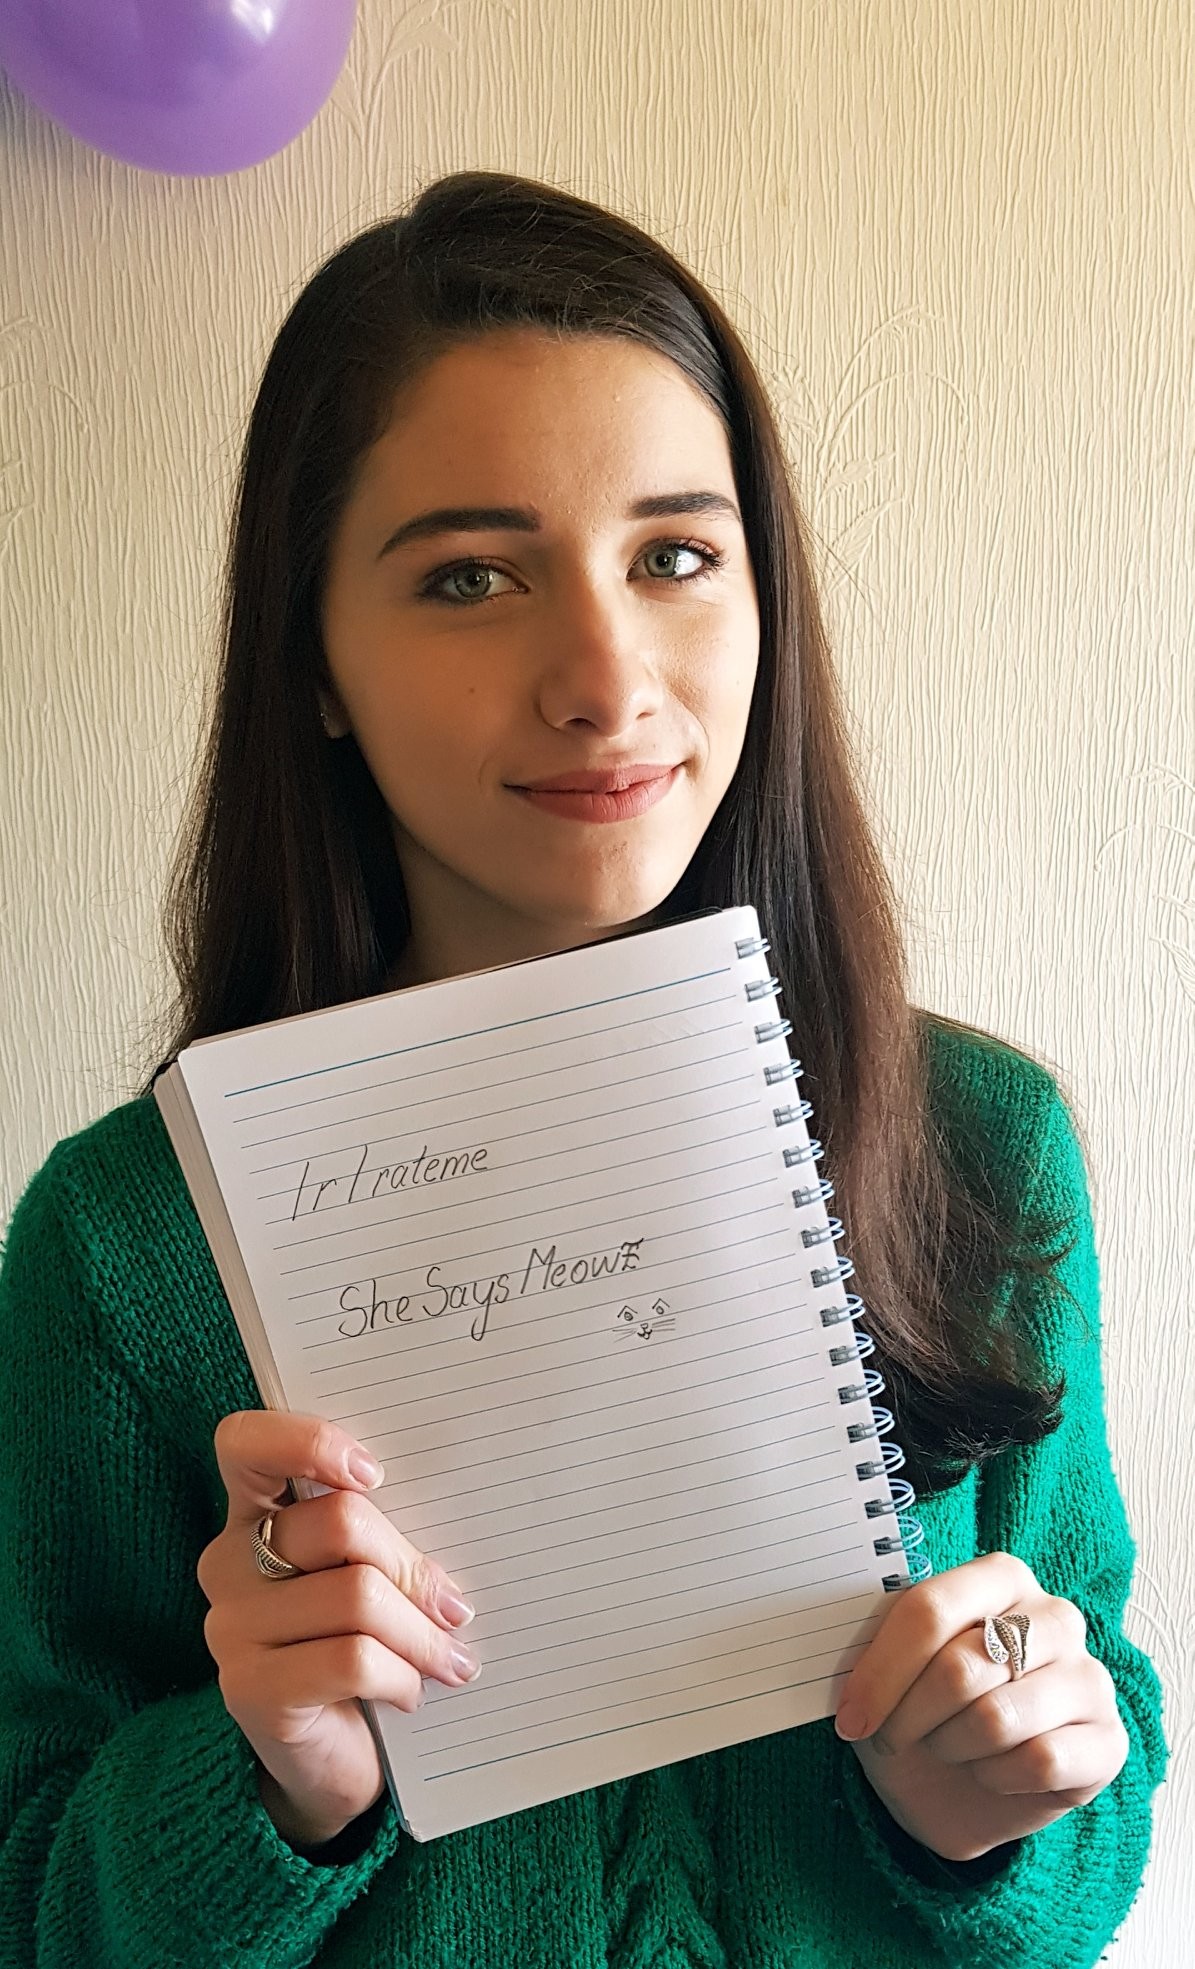 /r/rateme
SheSaysMeowz